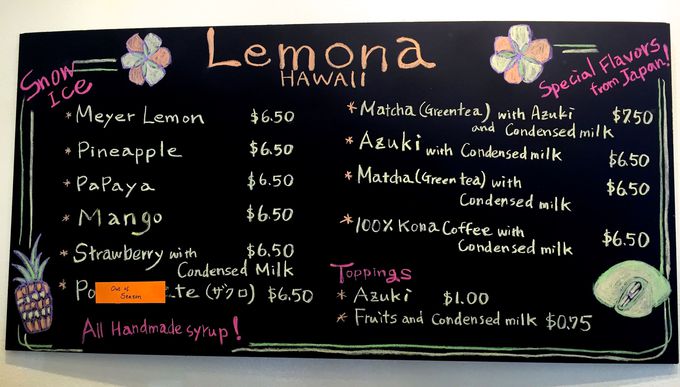 Lemona
HAWAII
Snow
ICE
* Meyer Lemon $6.50
* Pineapple $6.50
* PaPaya $6.50
* Mango $6.50
* Strawberry with $6.50
Condensed Milk
* Po te (ザクロ) $6.50
Out of
Season
All Handmade syrup!
Special Flavors
from Japan!
* Matcha (Greentea) with Azuki $7.50
and Condensed milk
* Azuki with Condensed milk
$6.50
* Matcha (Green tea) with $6.50
Condensed milk
* 100% Kona Coffee with
Condensed milk $6.50
Toppings
* Azuki $1.00
* Fruits and Condensed milk $0.75